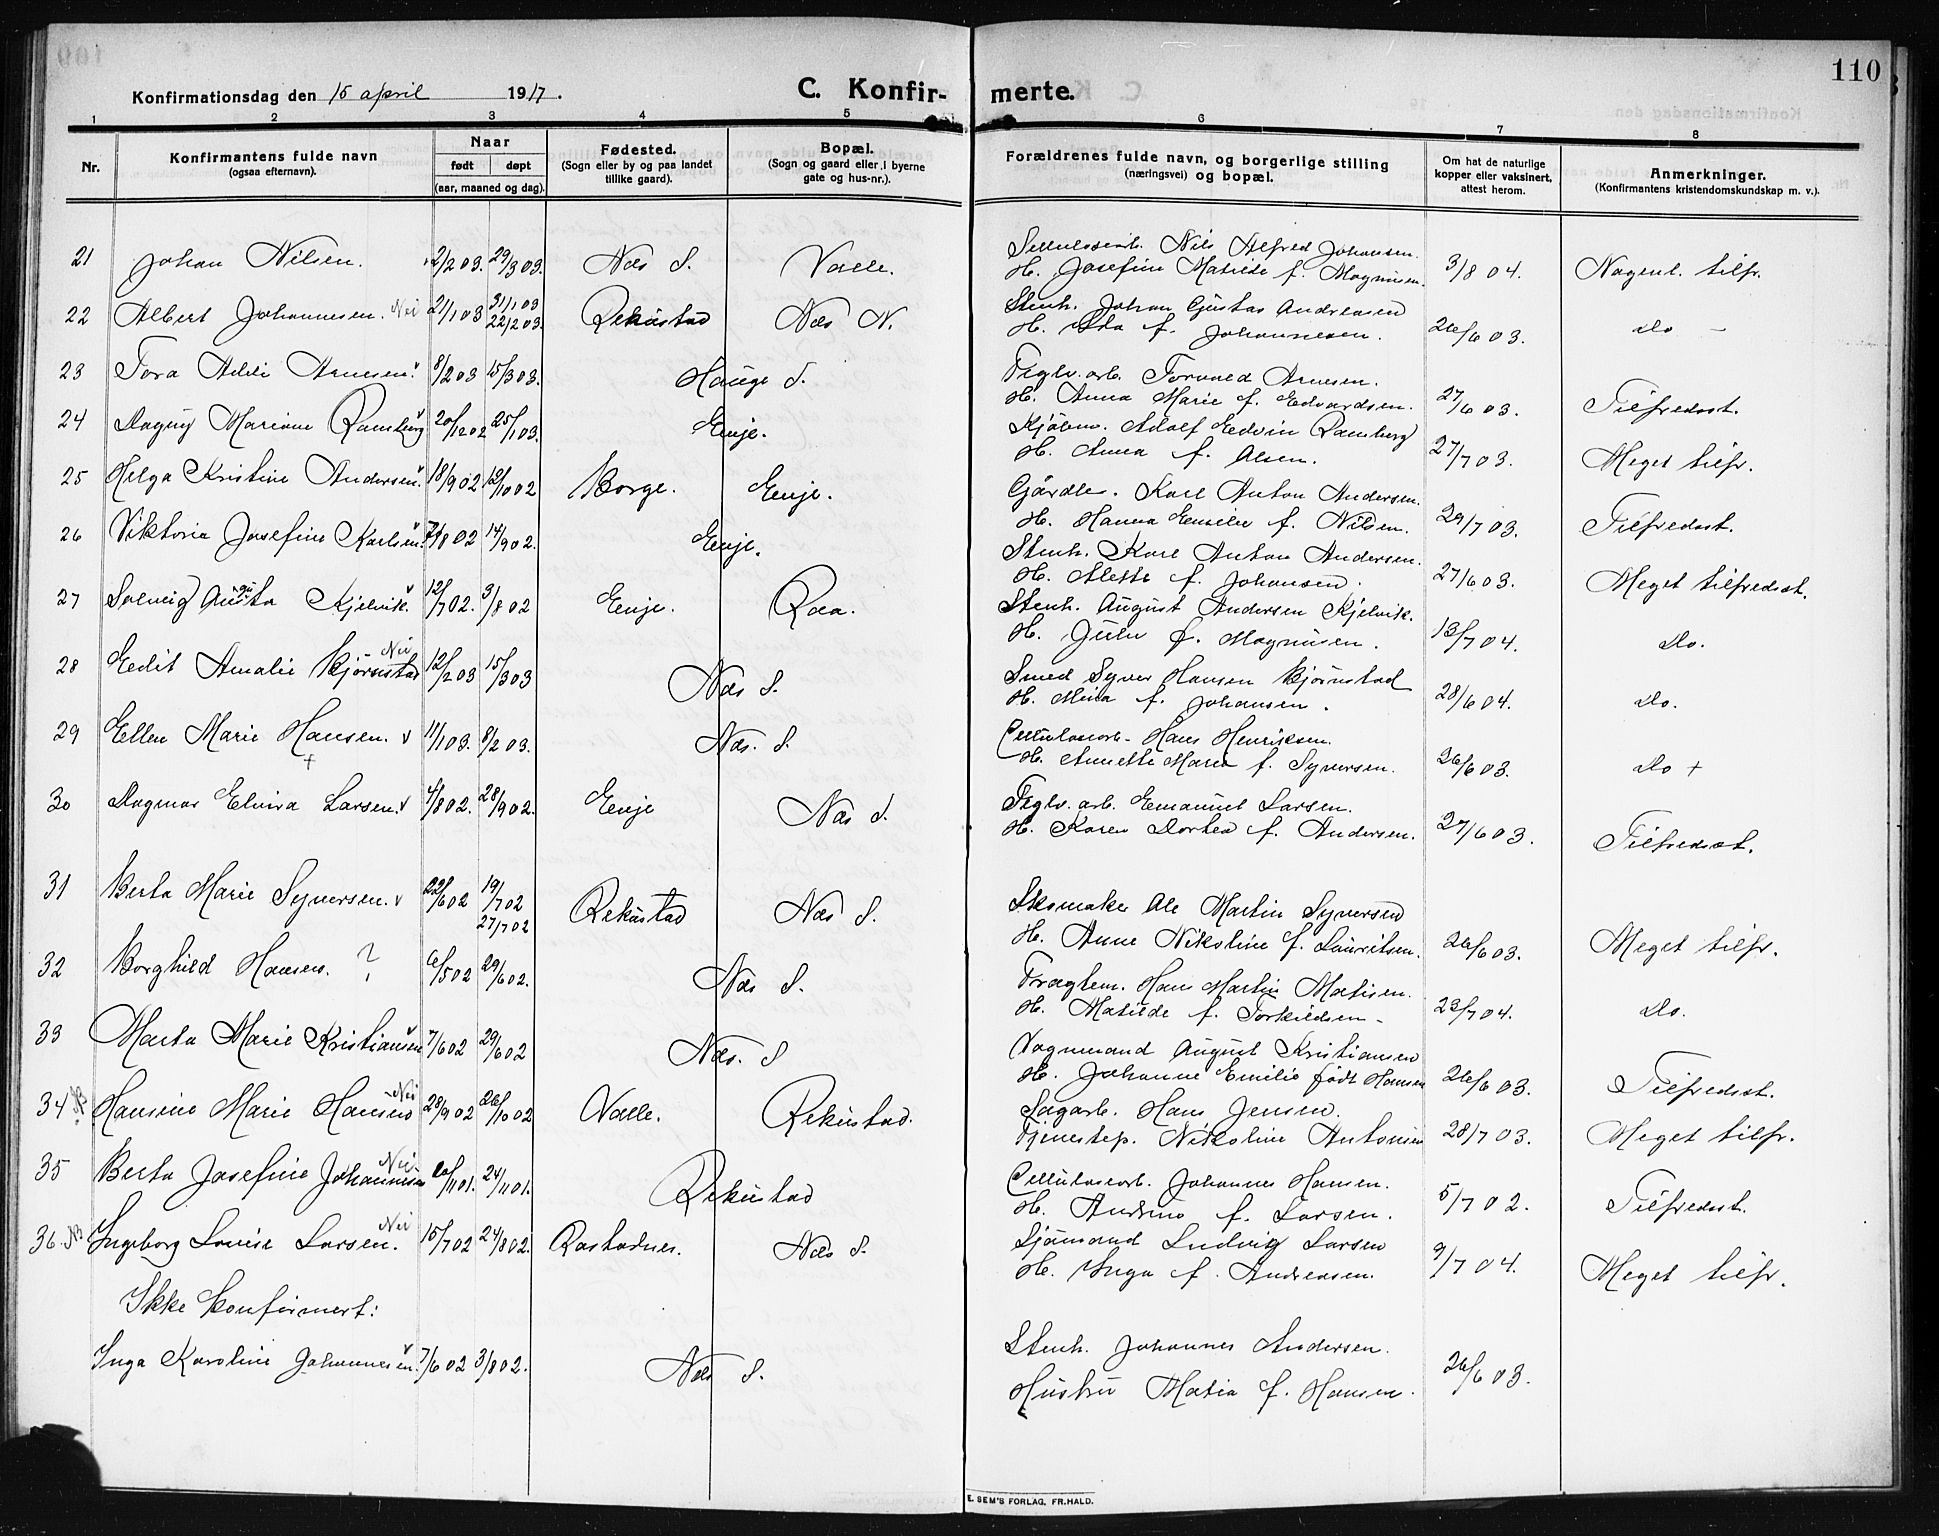 110
Konfirmationsdag den 15 april 1917.
C. Konfirmerte.
1 2 3 4 5 6 7 8
Nr.
Konfirmantens fulde navn
(ogsaa efternavn).
Naar
født døpt
(aar, maaned og dag).
Fødested.
(Sogn eller by og paa landet
tillike gaard).
Bopæl.
(Sogn og gaard eller i byerne
gate og hus-nr.).
Forældrenes fulde navn, og borgerlige stilling
(næringsvei) og bopæl.
Om hat de naturlige
kopper eller vaksinert,
attest herom.
Anmerkninger.
(Konfirmantens kristendomskundskap m. v.).
21 Johan Nilsen. 12/2 03. 29/3 03. Næs S. Valle. Cellulosearb. Nils Alfred Johansen.
H. Josefine Matilde f. Magnusen. 3/8 04. Nogenl. tilfr.
22 Albert Johannesen. Nei 21/1 03 31/1 03 22/2 03. Rekustad Næs N. Stenh. Johan Gustav Andreasen
H. Ida f. Johannesen. 26/6 03. Do -
23 Tora Arnesen. v 8/2 03 15/3 03. Hauge S. Teglv. arb. Torvald Arnesen.
H. Anna Marie f. Edvardsen. 27/6 03. Tilfredsst.
24 Dagny Mariane Ramberg v 20/12 02 25/1 03. Enje. Kjøbm. Adolf Edvin Ramberg
H. Anna f. Olsen. 27/7 03. Meget tilfr.
25 Helga Kristine Andersen. v 18/9 02 12/10 02 Borge. Enje. Karl Anton Andersen.
H. Hanna Emilie f. Nilsen. 29/7 03. Tilfredsst.
26 Viktoria Josefine Karlsen. v /8 02 14/9 02. Enje. Stenh. Karl Anton Andersen.
H. Alette f. Johansen. 27/6 03. Meget tilfredsst.
27 Solveig Augusta Kjelvik. v 12/7 02. 3/8 02 Enje. Raa. Stenh. August Andersen Kjelvik.
H. Julie f. Magnusen. 13/7 04. Do.
28 Edit Amalie Bjørnstad Nei 12/2 03 15/3 03 Næs S. Smed Syver Hansen Bjørnstad
H. Mina f. Johansen. 28/6 04. Do.
29 Ellen Marie Hansen. v + 11/1 03. 8/2 03. Næs. S. Cellulosearb. Hans Henriksen.
H. Annette Marie f. Syversen. 26/6 03. Do +
30 Dagmar Elvira Larsen. v 4/8 02. 28/9 02. Enje Næs S. Teglv. arb. Emanuel Larsen.
H. Karen Dortea f. Andersen. 27/6 03. Tilfredsst.
31 Berta Marie Syversen. v 22/6 02 19/7 02 27/7 02 Rekustad Næs S. Skomaker Ole Martin Syversen
H. Anne Nikoline f. Lauritsen. 26/6 03. Meget tilfr.
32 Borghild Hansen. ? 6/5 02 29/6 02. Næs S. Hans Martin Matisen.
H. Matilde f. Torkildsen - 23/7 04. Do.
33 Marta Marie Kristiansen v 7/6 02 29/6 02 Næs. S Vognmand August Kristiansen
H. Johanne Emilie født Hansen 26/6 03. Tilfredsst.
34 Hansine Marie Hansen Nei 28/9 02 26/10 02 Valle. Rekustad. Sagarb. Hans Jensen.
Tjenestep. Nikoline Antonsen 28/7 03. Meget tilfr.
35 Berta Josefine Johannesen Nei 20/11 01. 24/11 01. Rekustad Cellulosearb. Johannes Hansen.
H. Andrine f. Larsen. 5/7 02. Tilfredsst.
36. Ingeborg Lovise Larsen. Nei 15/7 02 24/8 02. Rostadnes. Næs S. Sjømand Ludvig Larsen
H. Inga f. Andreasen. 9/7 04. Meget tilfr.
Ikke konfirmert:
Inga Karoline Johannesen. v 7/6 02 3/8 02. Næs S. Stenh. Johannes Andersen.
Hustru Matia f. Hansen. 26/6 03.
E. SEM'S FORLAG, FR.HALD.